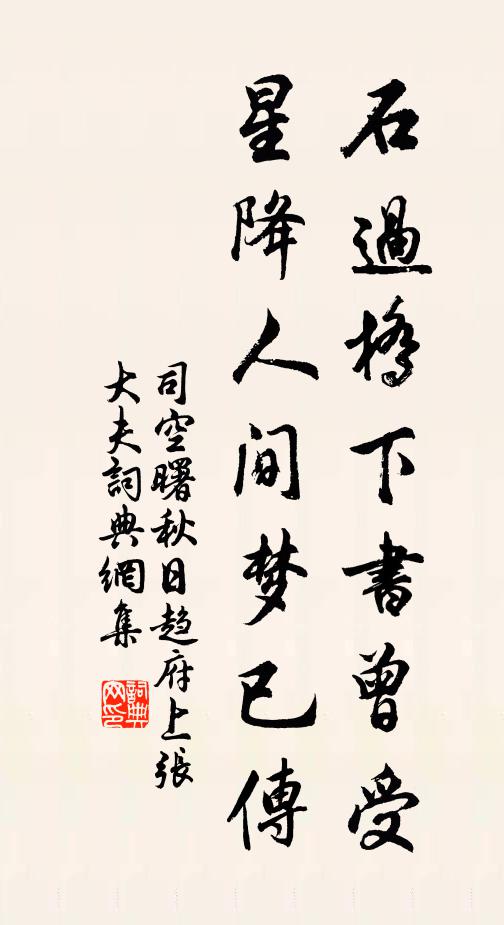 石過橋下書曾受
星降人間梦已傳
司空曙秋日趋府上張
大夫詞典網集
詞典网印